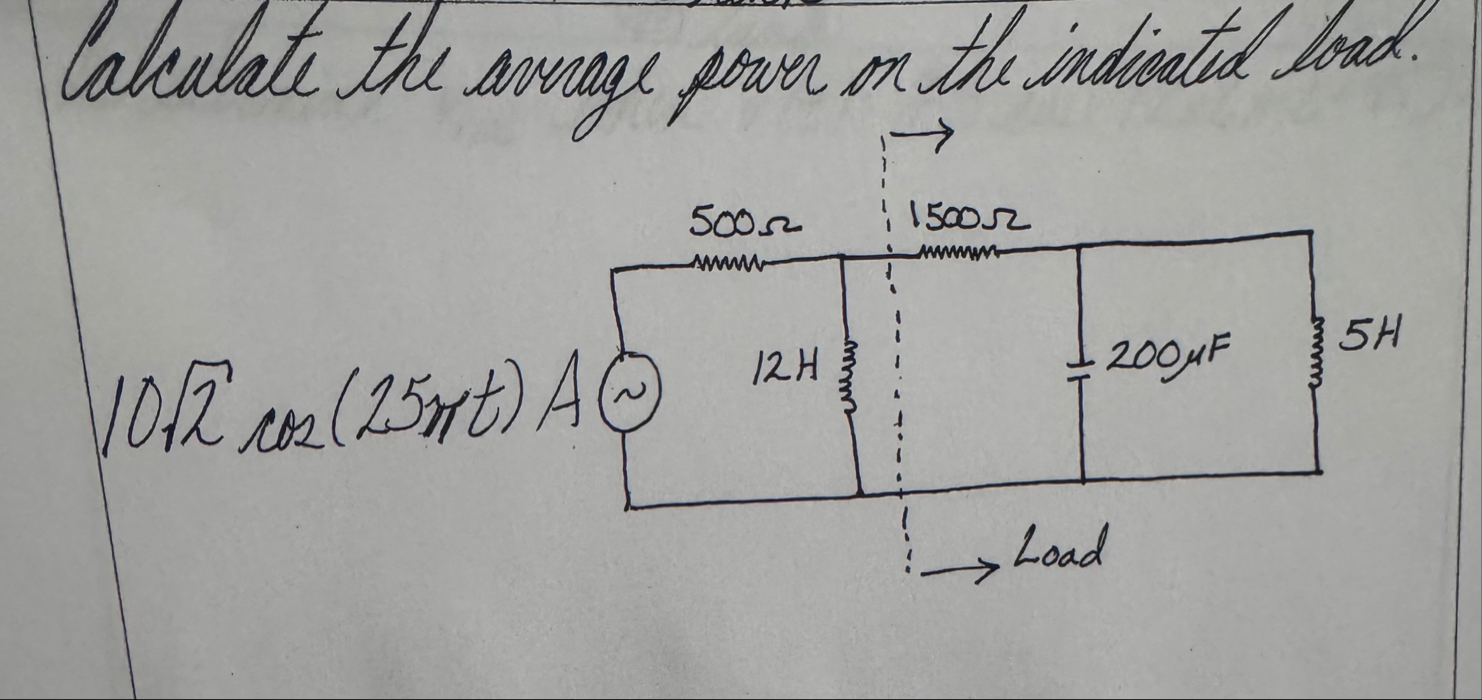 Calculate the average power on the indicated load.
500Ω
1500Ω
12H
200μF
5H
10√2 cos(25πt) A
~
Load